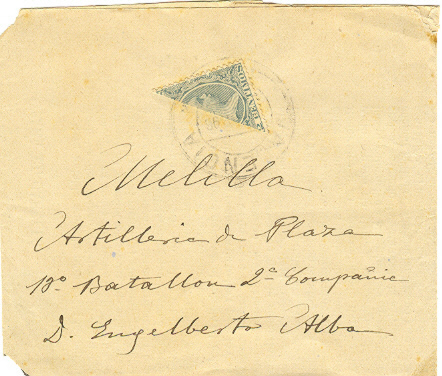 CENTIMOS
Melilla
Artilleria de Plaza
13º Batallon 2ª Compañia
D. Engelberto Alba